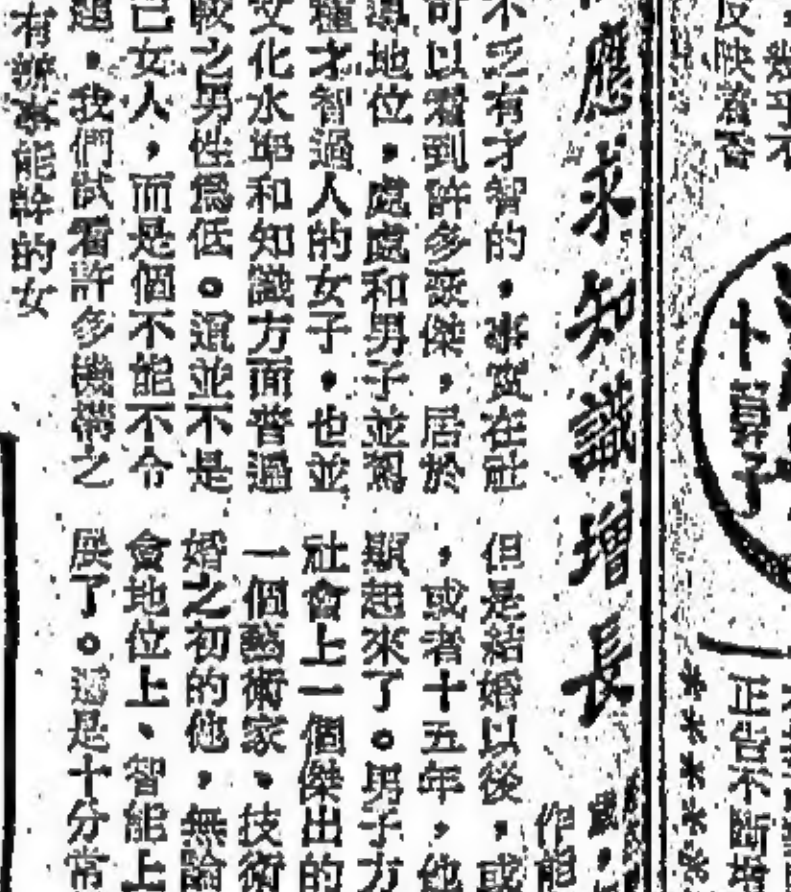 反映着否
卜算子
正告不斷
應求知識增長
作能
不乏有才智的，事實在社
可以看到許多豪傑，居於
導地位，處處和男子並駕
種才智過人的女子，也並
文化水準和知識方面普遍
較之男性為低。這並不是
己女人，而是個不能不令
題，我們試看許多機構之
有辦事能幹的女
但是結婚以後，或
，或者十五年，他
顯起來了。男子方
社會上一個傑出的
一個藝術家、技術
婚之初的他，無論
會地位上、智能上
展了。這是十分常